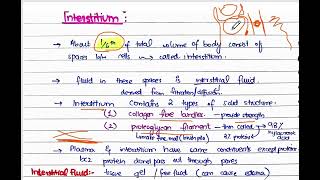 Interstitium :
→ About 1/6th of total volume of body consist of
spaces b/w cells → called interstitium.
→ fluid in these spaces is interstitial fluid.
derived from filtration/diffusion.
→ Interstitium contains 2 types of solid structure.
(1) collagen fibre bundles → provide strength
(2) proteoglycan filament → thin coiled → 98%
hyaluronic acid
2% protein
→ Plasma & interstitium have same constituents except proteins
bcz protein does not pass out through pores
Interstitial fluid:- tissue gel / free fluid (can cause edema)